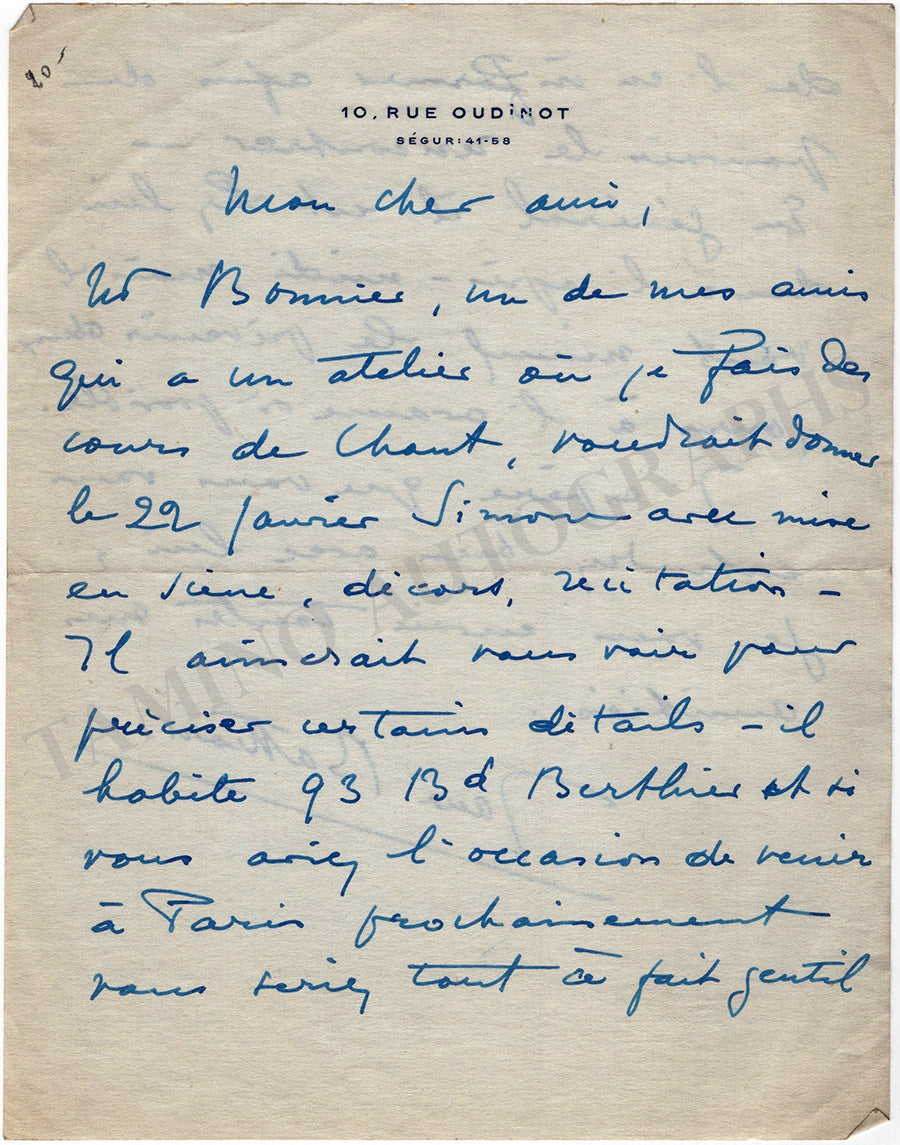 20
10, RUE OUDINOT
SÉGUR: 41-58
Mon cher ami,
Mr Bonnier, un de mes amis
qui a un atelier où je fais des
cours de Chant, voudrait donner
le 22 Janvier Simone avec mise
en scène, décors, récitation –
Il aimerait vous voir pour
préciser certains détails – il
habite 93 Bd Berthier et si
vous aviez l'occasion de venir
à Paris prochainement
vous seriez tout à fait gentil
TAMINO AUTOGRAPHS